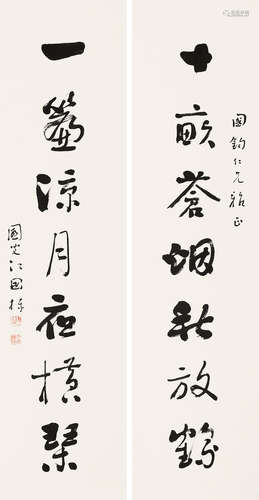 十畝蒼烟秋放鶴
國鈞仁兄雅正
一簾涼月夜橫琴
江國棟